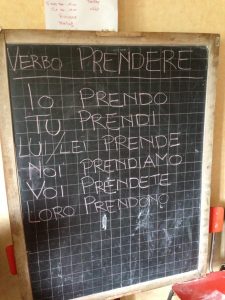 VERBO PRENDERE
IO PRENDO
TU PRENDI
LUI/LEI PRENDE
NOI PRENDIAMO
VOI PRENDETE
LORO PRENDONO